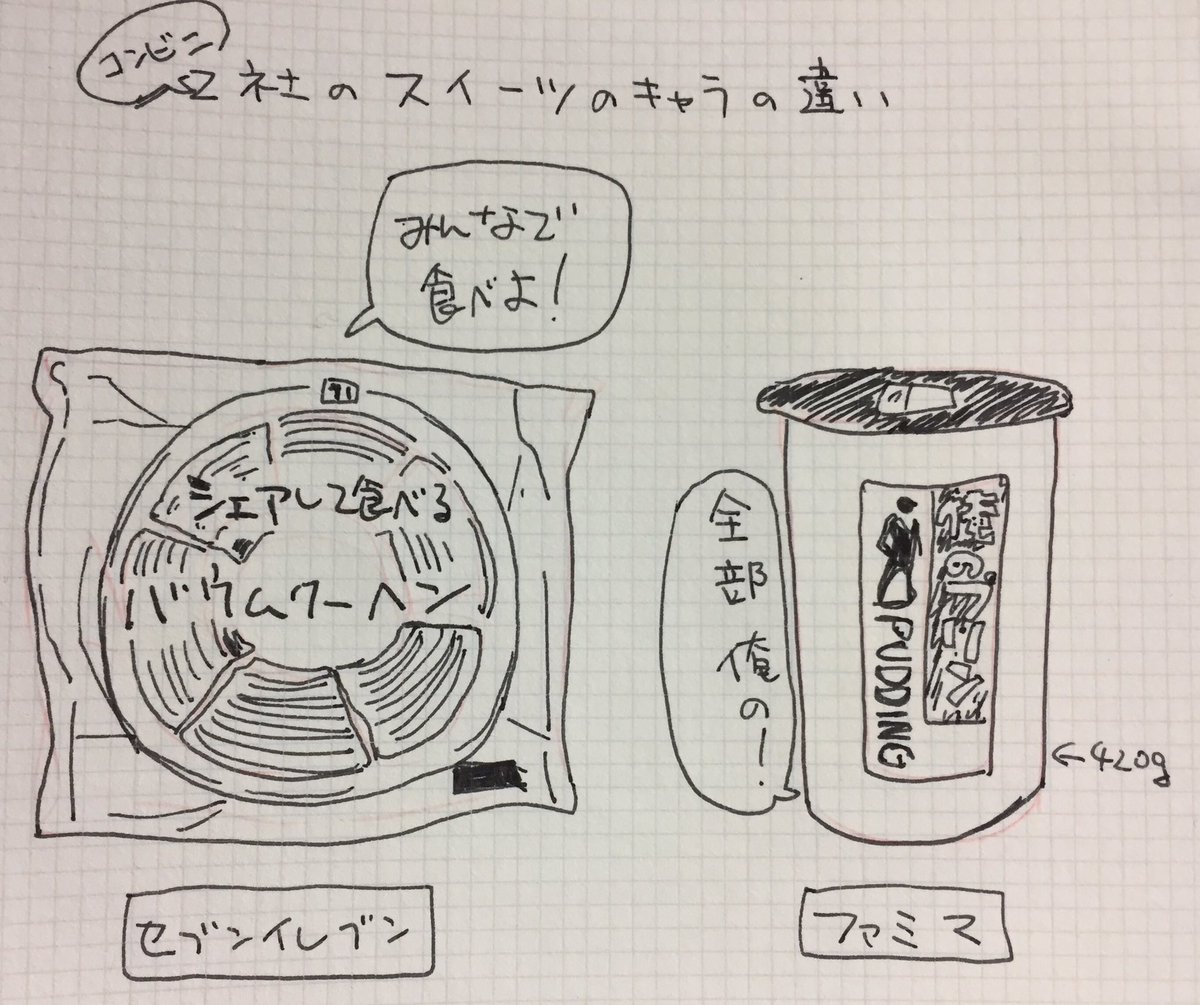 コンビニ
2社のスイーツのキャラの違い
みんなで
食べよ!
シェアして食べる
バウムクーヘン
全部俺の!
PUDDING
←420g
セブンイレブン
ファミマ